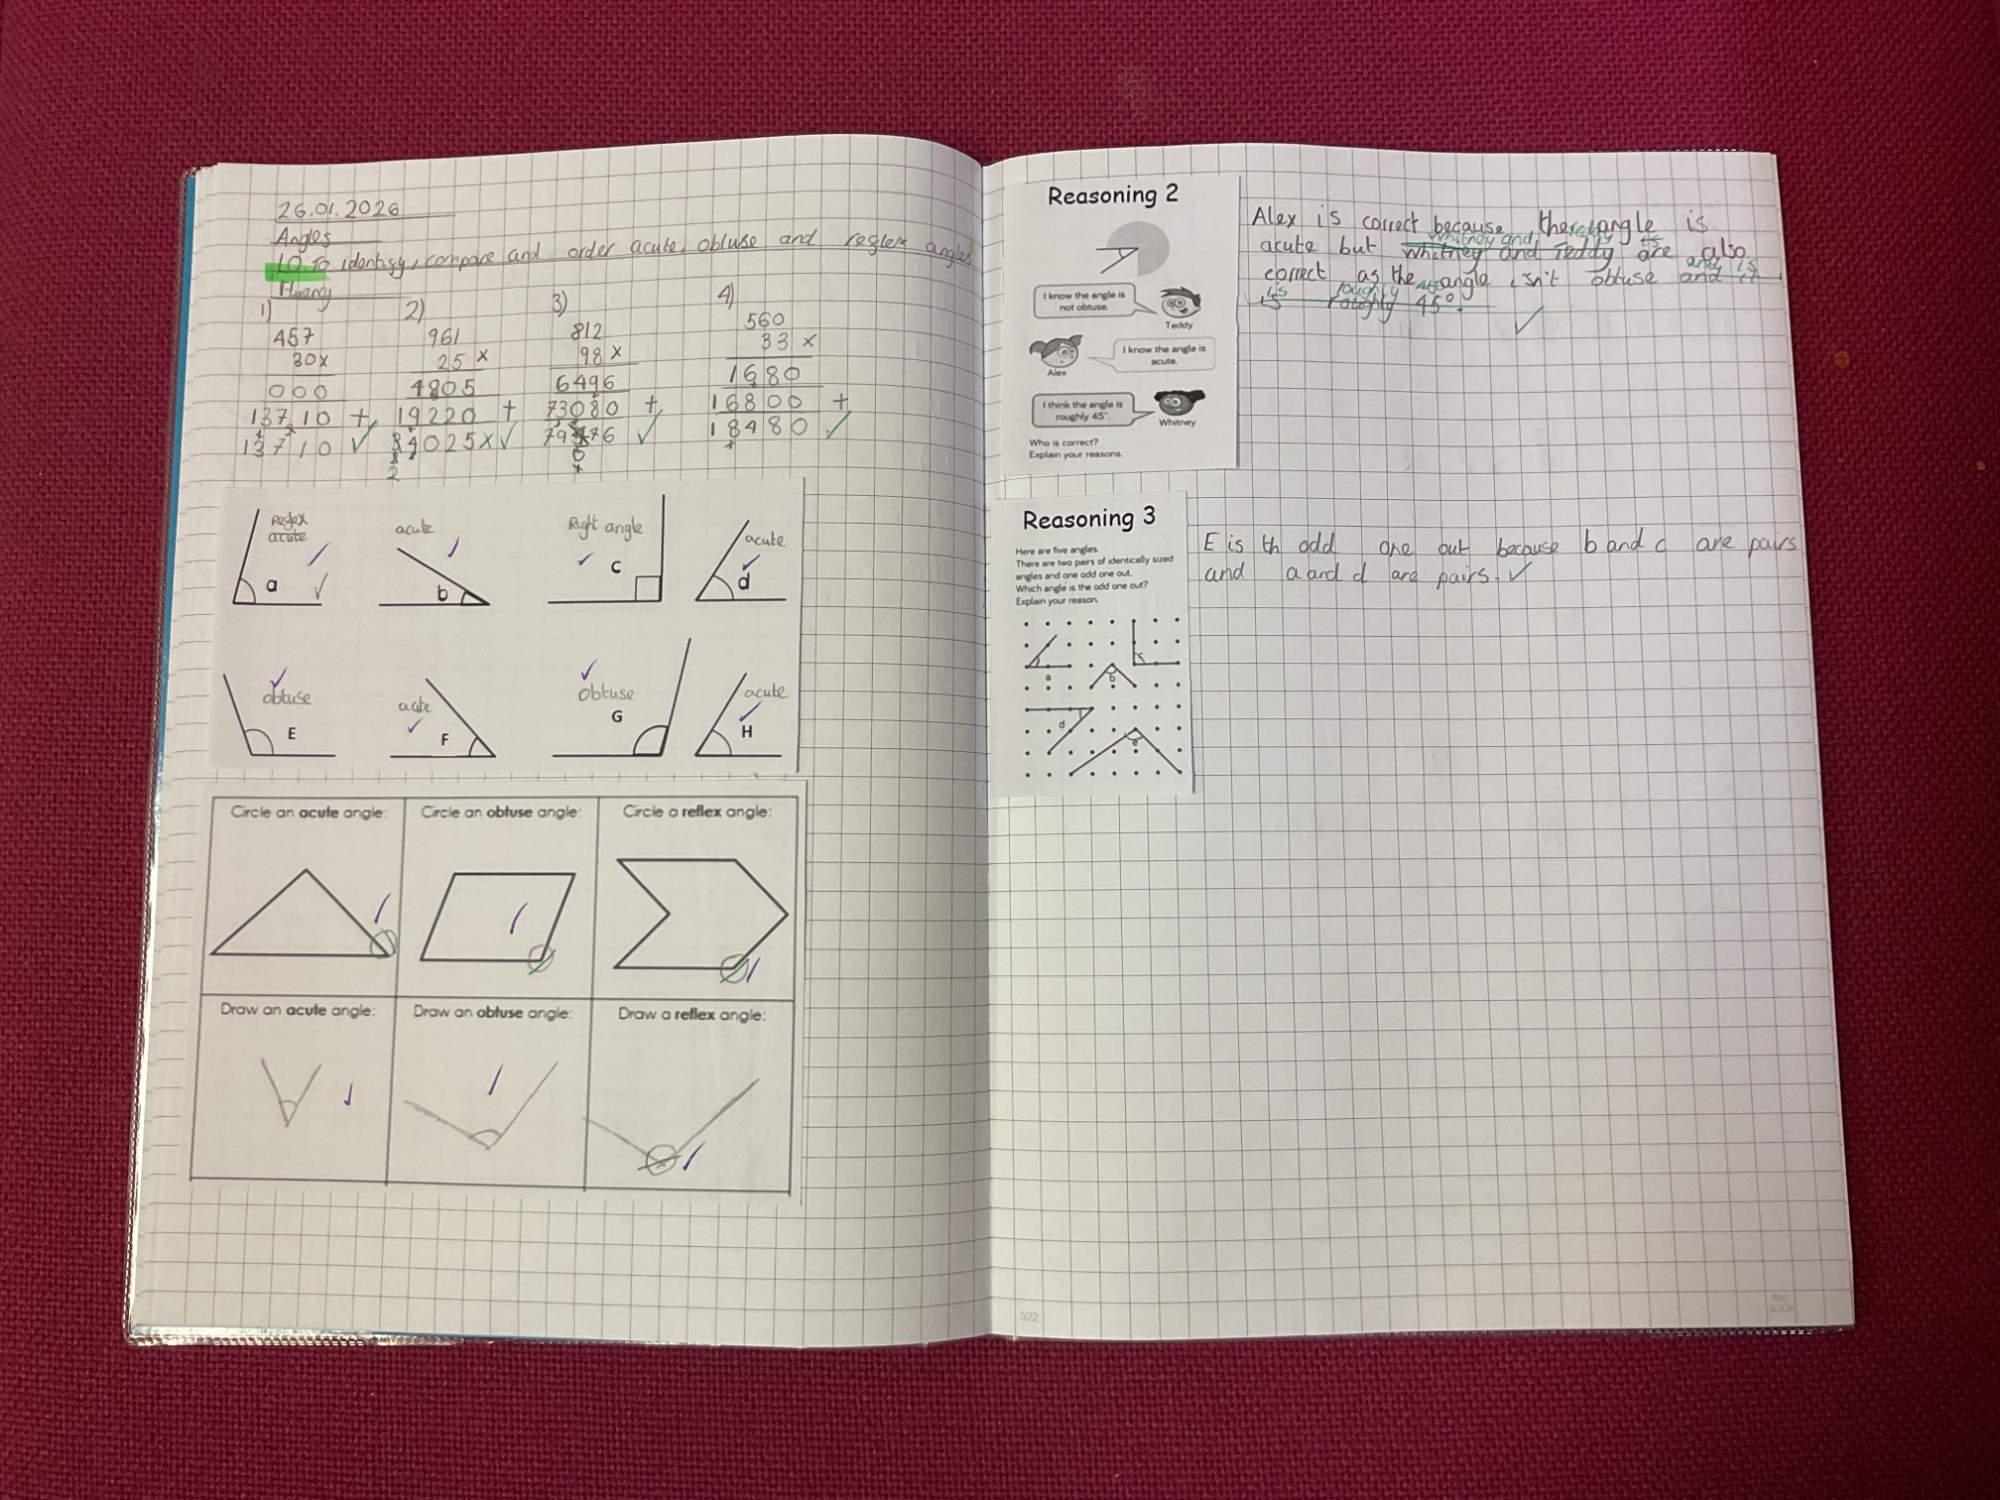 26.01.2026
Angles
LO: To identify, compare and order acute, obtuse and reflex angles
Fluency
1) 2) 3) 4)
457 961 812 560
30x 25 x 98 x 33 x
000 4805 6496 1680
13710 + 19220 + 73080 + 16800 +
13710 ✓ 24025 x ✓ 79576 ✓ 18480 ✓
Reflex
acute
a
acute
b
Right angle
C
acute
d
obtuse
E
acute
F
obtuse
G
acute
H
Circle an acute angle:
Circle an obtuse angle:
Circle a reflex angle:
Draw an acute angle:
Draw an obtuse angle:
Draw a reflex angle:
Reasoning 2
I know the angle is
not obtuse.
Teddy
I know the angle is
acute.
Alex
I think the angle is
roughly 45°.
Whitney
Who is correct?
Explain your reasons.
Alex is correct because, the angle is
acute but Whitney and Teddy are also
correct as the angle isn't obtuse and it
is roughly 45°.
Reasoning 3
Here are five angles.
There are two pairs of identically sized
angles and one odd one out.
Which angle is the odd one out?
Explain your reason.
a
b
c
d
e
E is th odd one out because b and c are pairs
and a and d are pairs.
322